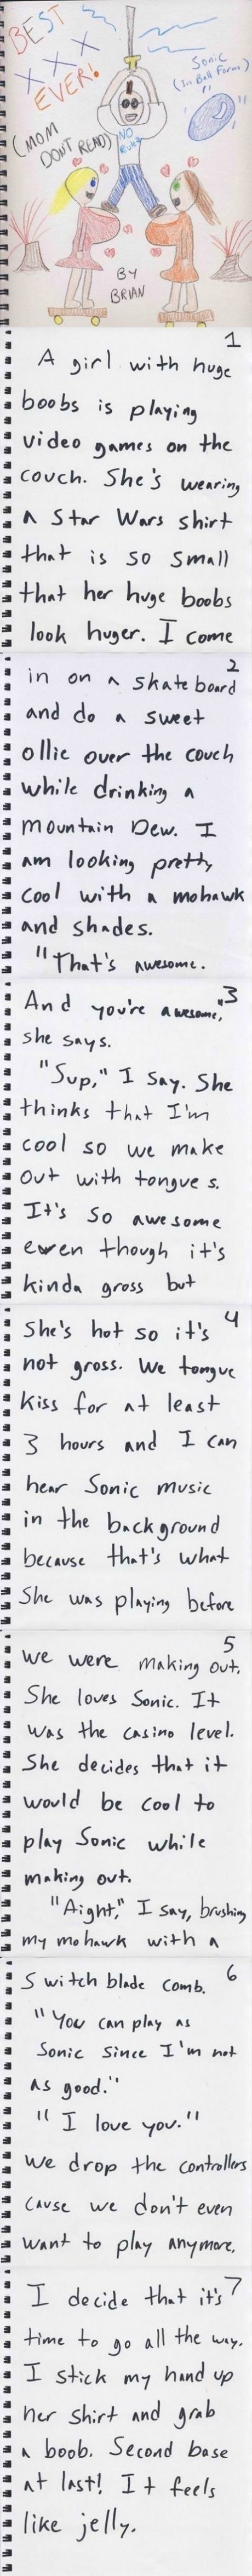 BEST
X X X
EVER!
(MOM
DON'T READ)
Sonic
(In Ball Form)
NO
Rulz
BY
BRIAN
1
A girl with huge
boobs is playing
video games on the
couch. She's wearing
a Star Wars shirt
that is so small
that her huge boobs
look huger. I come
2
in on a skateboard
and do a sweet
ollie over the couch
while drinking a
Mountain Dew. I
am looking pretty
cool with a mohawk
and shades.
"That's awesome.
3
And you're awesome,"
she says.
"Sup," I say. She
thinks that I'm
cool so we make
out with tongues.
It's so awesome
even though it's
kinda gross but
4
she's hot so it's
not gross. We tongue
kiss for at least
3 hours and I can
hear Sonic music
in the background
because that's what
she was playing before
5
we were making out.
She loves Sonic. It
was the casino level.
She decides that it
would be cool to
play Sonic while
making out.
"Aight," I say, brushing
my mohawk with a
6
switchblade comb.
"You can play as
Sonic since I'm not
as good."
"I love you."
We drop the controllers
cause we don't even
want to play anymore.
7
I decide that it's
time to go all the way.
I stick my hand up
her shirt and grab
a boob. Second base
at last! It feels
like jelly.